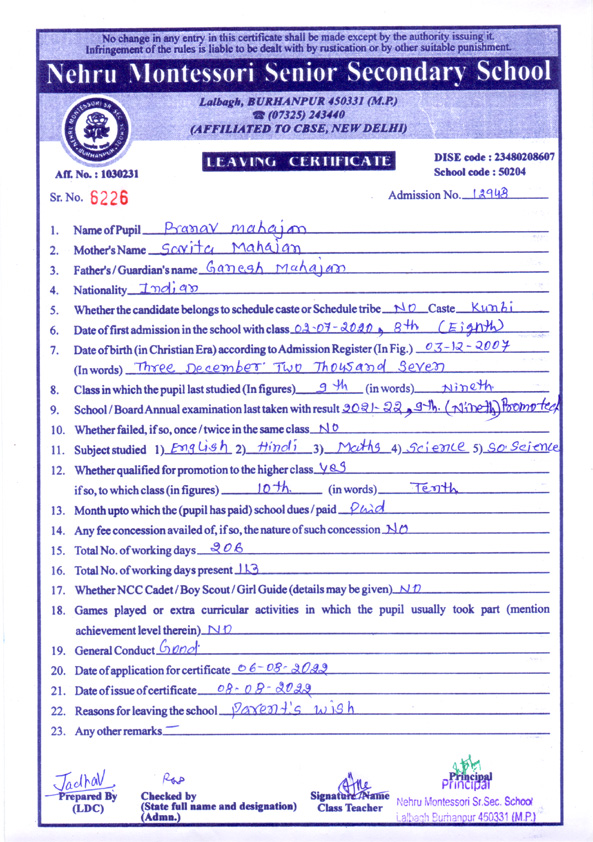 No change in any entry in this certificate shall be made except by the authority issuing it.
Infringement of the rules is liable to be dealt with by rustication or by other suitable punishment.
Nehru Montessori Senior Secondary School
Lalbagh, BURHANPUR 450331 (M.P.)
☎ (07325) 243440
(AFFILIATED TO CBSE, NEW DELHI)
NEHRU MONTESSORI SR. SEC. SCHOOL
BURHANPUR
LEAVING CERTIFICATE
DISE code : 23480208607
School code : 50204
Aff. No. : 1030231
Sr. No. 6226
Admission No. 12948
1. Name of Pupil Pranav Mahajan
2. Mother's Name Savita Mahajan
3. Father's / Guardian's name Ganesh Mahajan
4. Nationality Indian
5. Whether the candidate belongs to schedule caste or Schedule tribe NO Caste Kunbi
6. Date of first admission in the school with class 02-07-2020, 8th (Eighth)
7. Date of birth (in Christian Era) according to Admission Register (In Fig.) 03-12-2007
(In words) Three December Two Thousand Seven
8. Class in which the pupil last studied (In figures) 9th (in words) Nineth
9. School / Board Annual examination last taken with result 2021-22, 9th. (Nineth) Promoted
10. Whether failed, if so, once / twice in the same class NO
11. Subject studied 1) English 2) Hindi 3) Maths 4) Science 5) So Science
12. Whether qualified for promotion to the higher class yes
if so, to which class (in figures) 10th. (in words) Tenth
13. Month upto which the (pupil has paid) school dues / paid Paid
14. Any fee concession availed of, if so, the nature of such concession NO
15. Total No. of working days 206
16. Total No. of working days present 113
17. Whether NCC Cadet / Boy Scout / Girl Guide (details may be given) NO
18. Games played or extra curricular activities in which the pupil usually took part (mention
achievement level therein) NO
19. General Conduct Good
20. Date of application for certificate 06-08-2022
21. Date of issue of certificate 08-08-2022
22. Reasons for leaving the school Parent's wish
23. Any other remarks —
Jadhav
Prepared By
(LDC)
Checked by
(State full name and designation)
(Admn.)
Signature / Name
Class Teacher
Principal
Principal
Nehru Montessori Sr.Sec. School
Lalbagh Burhanpur 450331 (M.P.)